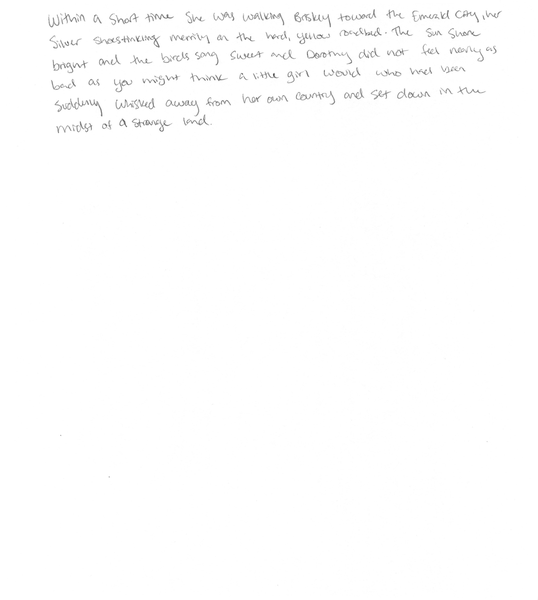 Within a short time she was walking Briskley toward the Emerald City, her
Silver Shoestinking merrily on the hard, yellow roadbed. The Sun Shone
bright and the birds sang Sweet and Dorothy did not feel nearly as
bad as you might think a little girl would who had been
Suddenly whisked away from her own country and set down in the
midst of a strange land.